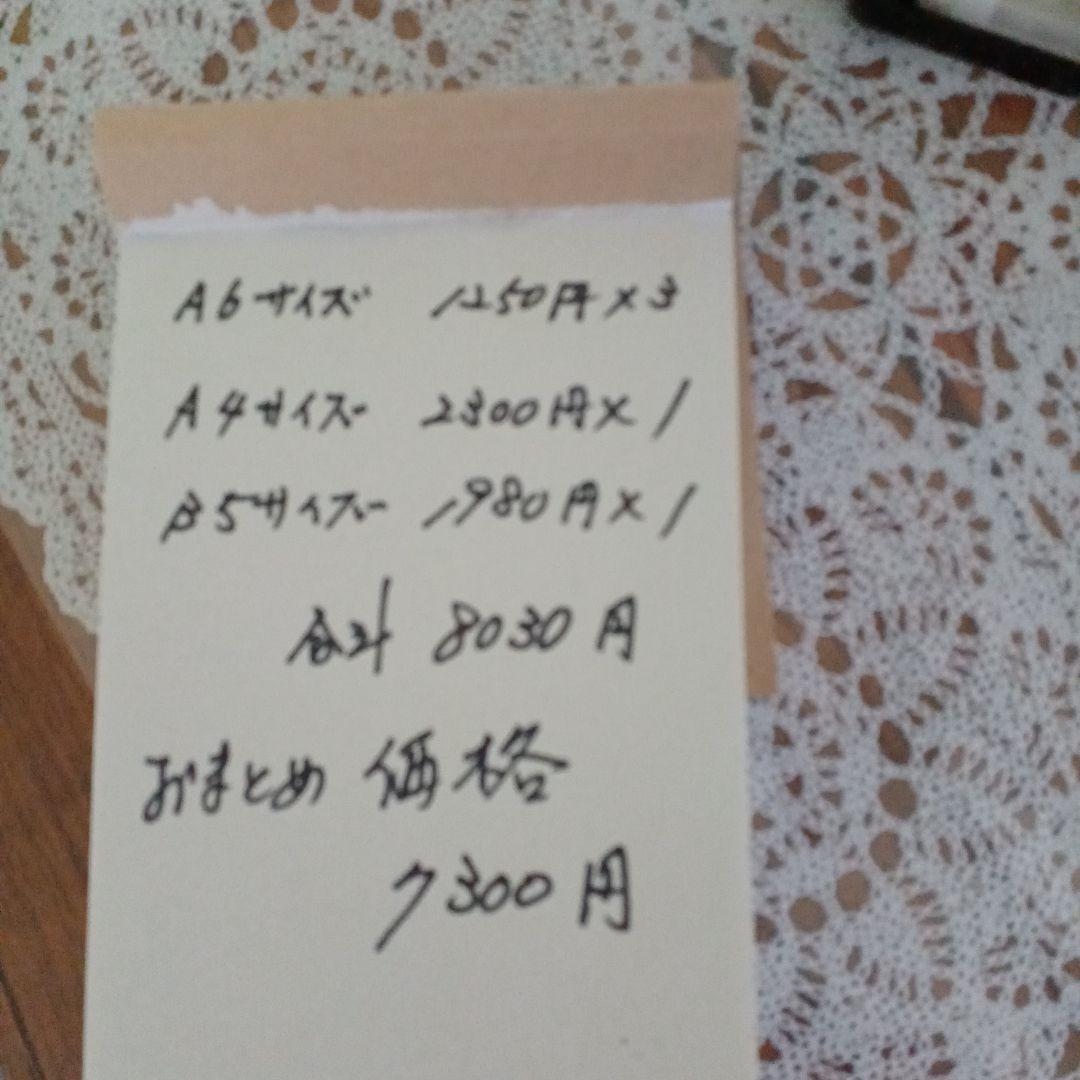 A6サイズ 1250円×3
A4サイズ 2300円×1
B5サイズ 1980円×1
合計 8030円
おまとめ 価格
7300円